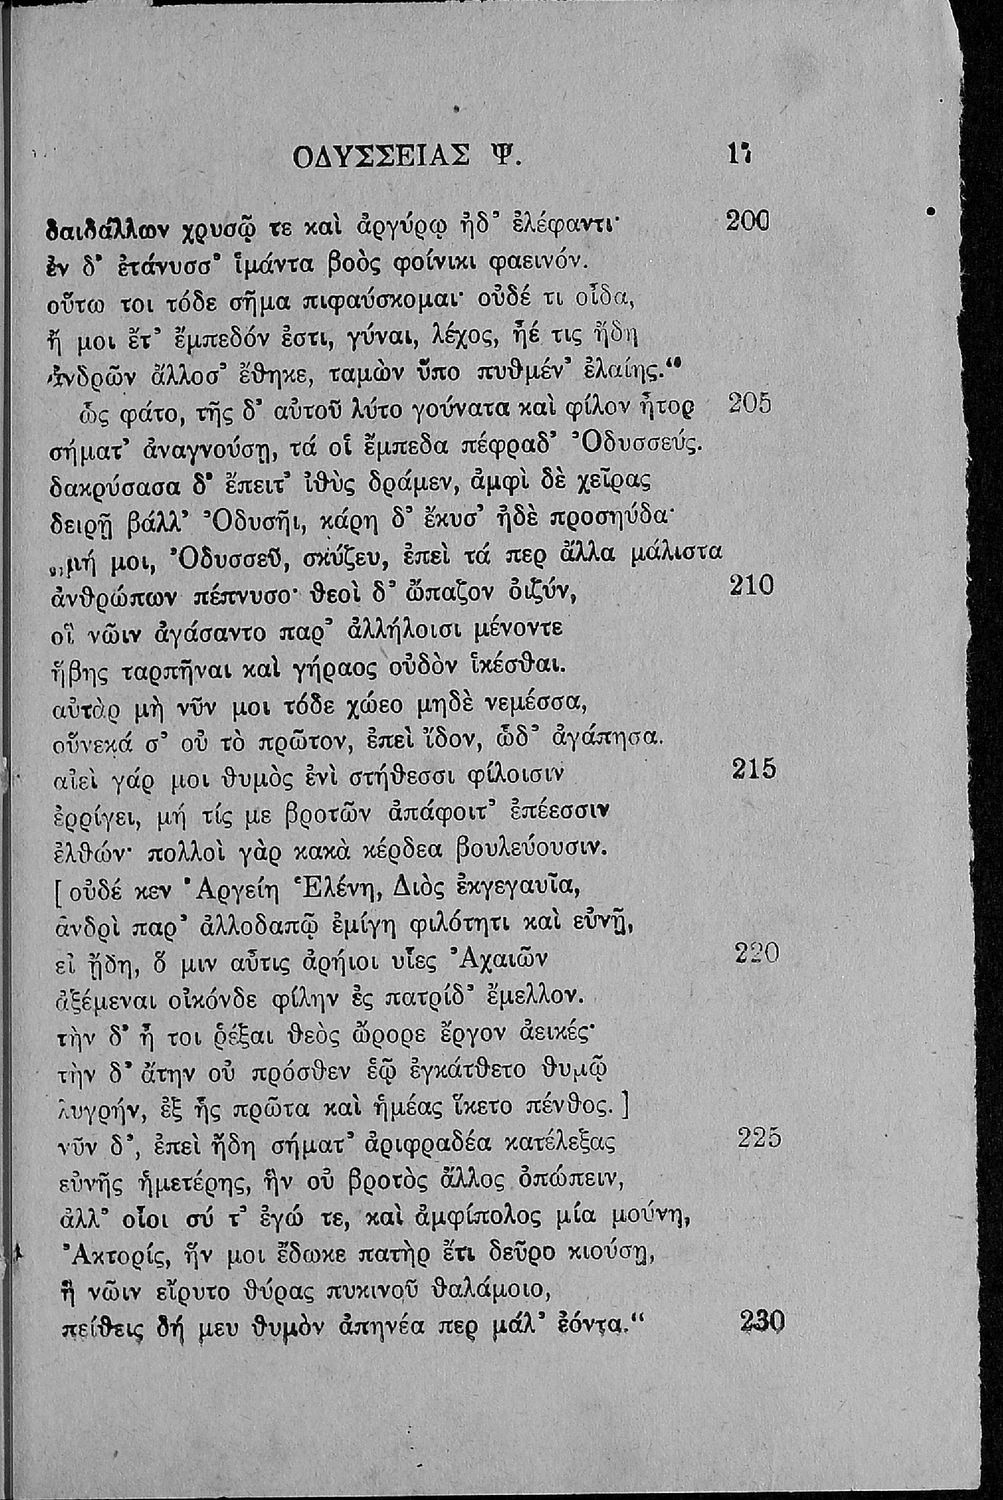 ΟΔΥΣΣΕΙΑΣ Ψ.
δαιδάλλων χρυσῷ τε καὶ ἀργύρῳ ἠδ᾽ ἐλέφαντι· 200
ἐν δ᾽ ἐτάνυσσ᾽ ἱμάντα βοὸς φοίνικι φαεινόν.
οὕτω τοι τόδε σῆμα πιφαύσκομαι· οὐδέ τι οἶδα,
ἤ μοι ἔτ᾽ ἔμπεδόν ἐστι, γύναι, λέχος, ἦέ τις ἤδη
ἀνδρῶν ἄλλοσ᾽ ἔθηκε, ταμὼν ὕπο πυθμέν᾽ ἐλαίης.“
ὣς φάτο, τῆς δ᾽ αὐτοῦ λύτο γούνατα καὶ φίλον ἦτορ 205
σήματ᾽ ἀναγνούσῃ, τά οἱ ἔμπεδα πέφραδ᾽ Ὀδυσσεύς.
δακρύσασα δ᾽ ἔπειτ᾽ ἰθὺς δράμεν, ἀμφὶ δὲ χεῖρας
δειρῇ βάλλ᾽ Ὀδυσῆι, κάρη δ᾽ ἔκυσ᾽ ἠδὲ προσηύδα·
„μή μοι, Ὀδυσσεῦ, σκύζευ, ἐπεὶ τά περ ἄλλα μάλιστα
ἀνθρώπων πέπνυσο· θεοὶ δ᾽ ὤπαζον ὀιζύν, 210
οἳ νῶιν ἀγάσαντο παρ᾽ ἀλλήλοισι μένοντε
ἥβης ταρπῆναι καὶ γήραος οὐδὸν ἱκέσθαι.
αὐτὰρ μὴ νῦν μοι τόδε χώεο μηδὲ νεμέσσα,
οὕνεκά σ᾽ οὐ τὸ πρῶτον, ἐπεὶ ἴδον, ὧδ᾽ ἀγάπησα.
αἰεὶ γάρ μοι θυμὸς ἐνὶ στήθεσσι φίλοισιν 215
ἐρρίγει, μή τίς με βροτῶν ἀπάφοιτ᾽ ἐπέεσσιν
ἐλθών· πολλοὶ γὰρ κακὰ κέρδεα βουλεύουσιν.
[οὐδέ κεν Ἀργείη Ἑλένη, Διὸς ἐκγεγαυῖα,
ἀνδρὶ παρ᾽ ἀλλοδαπῷ ἐμίγη φιλότητι καὶ εὐνῇ,
εἰ ᾔδη, ὅ μιν αὖτις ἀρήιοι υἷες Ἀχαιῶν 220
ἀξέμεναι οἶκόνδε φίλην ἐς πατρίδ᾽ ἔμελλον.
τὴν δ᾽ ἦ τοι ῥέξαι θεὸς ὤρορε ἔργον ἀεικές·
τὴν δ᾽ ἄτην οὐ πρόσθεν ἑῷ ἐγκάτθετο θυμῷ
λυγρήν, ἐξ ἧς πρῶτα καὶ ἡμέας ἵκετο πένθος.]
νῦν δ᾽, ἐπεὶ ἤδη σήματ᾽ ἀριφραδέα κατέλεξας 225
εὐνῆς ἡμετέρης, ἣν οὐ βροτὸς ἄλλος ὀπώπειν,
ἀλλ᾽ οἶοι σύ τ᾽ ἐγώ τε, καὶ ἀμφίπολος μία μούνη,
Ἀκτορίς, ἥν μοι ἔδωκε πατὴρ ἔτι δεῦρο κιούσῃ,
ἣ νῶιν εἴρυτο θύρας πυκινοῦ θαλάμοιο,
πείθεις δή μευ θυμὸν ἀπηνέα περ μάλ᾽ ἐόντα.“ 230